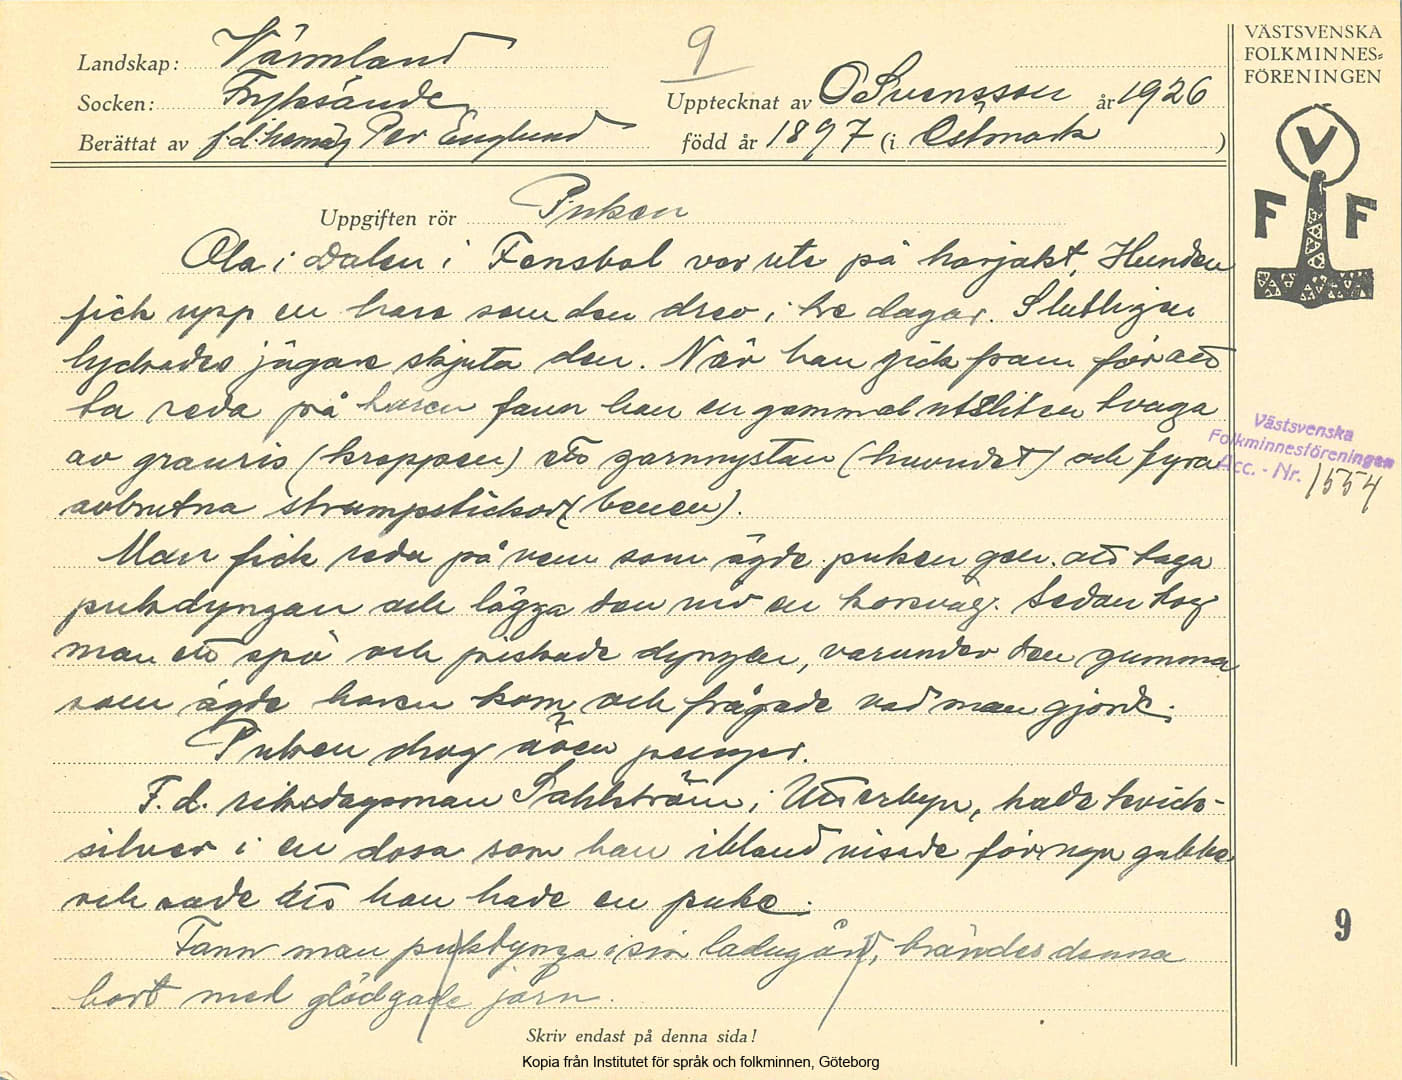 VÄSTSVENSKA
FOLKMINNES=
FÖRENINGEN
V
F F
9
Landskap: Värmland
Socken: Fryksände
Upptecknat av O Svensson år 1926
Berättat av f.d. hemäg Per Englund född år 1897 (i Östmark )
Uppgiften rör Puken
Ola i Dalen i Fensbol var ute på harjakt, Hunden
fick upp en hare som den drev i tre dagar. Slutligen
lyckades jägare skjuta den. När han gick fram för att
ta reda på haren fann han en gammal utsliten tvaga
av granris (kroppen) ett garnnystan (huvudet) och fyra
avbrutna strumpstickor (benen).
Man fick reda på vem som ägde puken gen. att taga
pukdyngan och lägga den uti en korsväg. Sedan tog
man ett spö och piskade dyngen, varunder den gumma
som ägde haren kom och frågade vad man gjorde.
Puken drog även penger.
F.d. riksdagsman Dahlström i Utterbyn, hade kvick-
silver i en dosa som han ibland visade för nya gubbe
och sade att han hade en puke.
Fann man pukdynga i sin ladugård, brändes denna
bort med glödgade järn.
Västsvenska
Folkminnesföreningen
Acc. - Nr. 1554
9
Skriv endast på denna sida!
Kopia från Institutet för språk och folkminnen, Göteborg